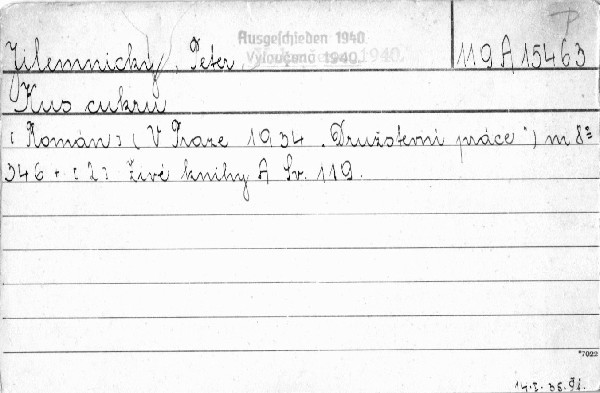 P
Ausgeschieden 1940
Vyloučeno 1940.
Jilemnický, Peter, 119 A 15463
Kus cukru
[Román] (V Praze 1934 „Družstevní práce") m 8°
346 + [2] Živé knihy A Sv. 119.
*7022
14.I.35.